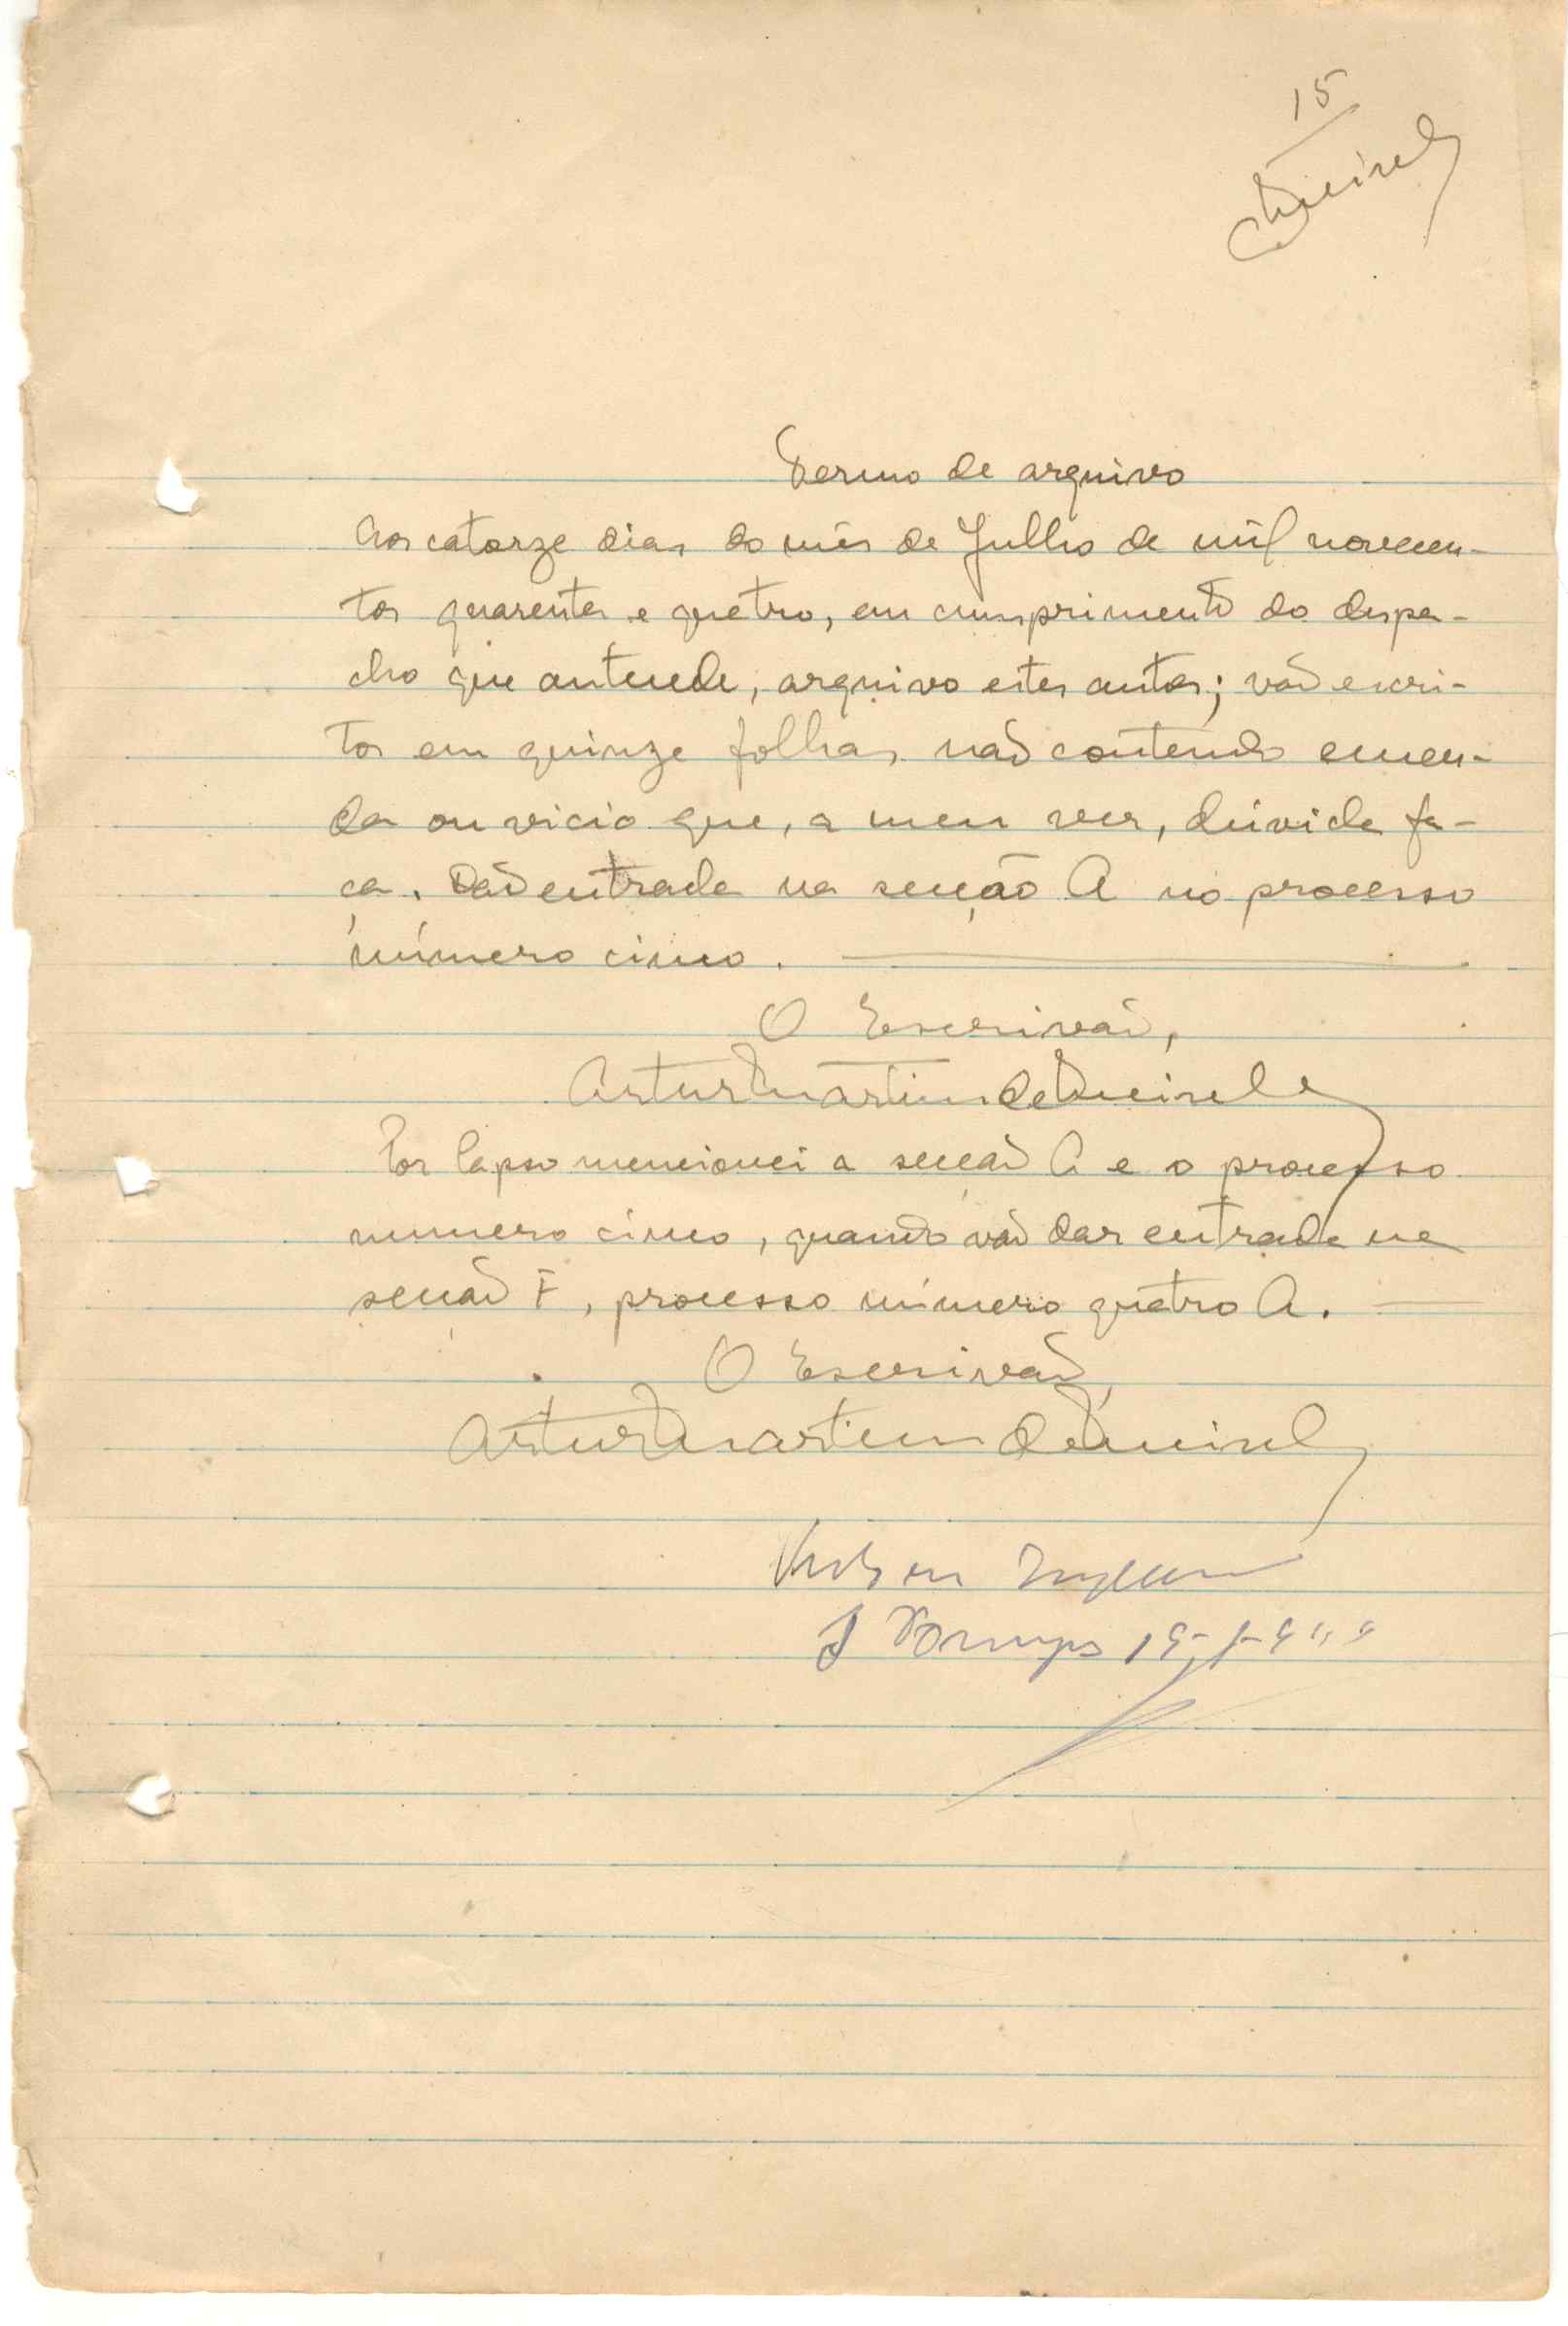 15
Termo de arquivo
Aos catorze dias do mês de Julho de mil novecen-
tos quarenta e quatro, em cumprimento do despa-
cho que antecede, arquivo estes autos; vão escri-
tos em quinze folhas não contendo emen-
da ou vicio que, a meu ver, dúvida fa-
ça. Dão entrada na secção A no processo
número cinco.
O Escrivão,
Artur Martins de
Por lapso mencionei a secção A e o processo
numero cinco, quando vão dar entrada na
secção F, processo número quatro A.
O Escrivão,
Artur Martins de